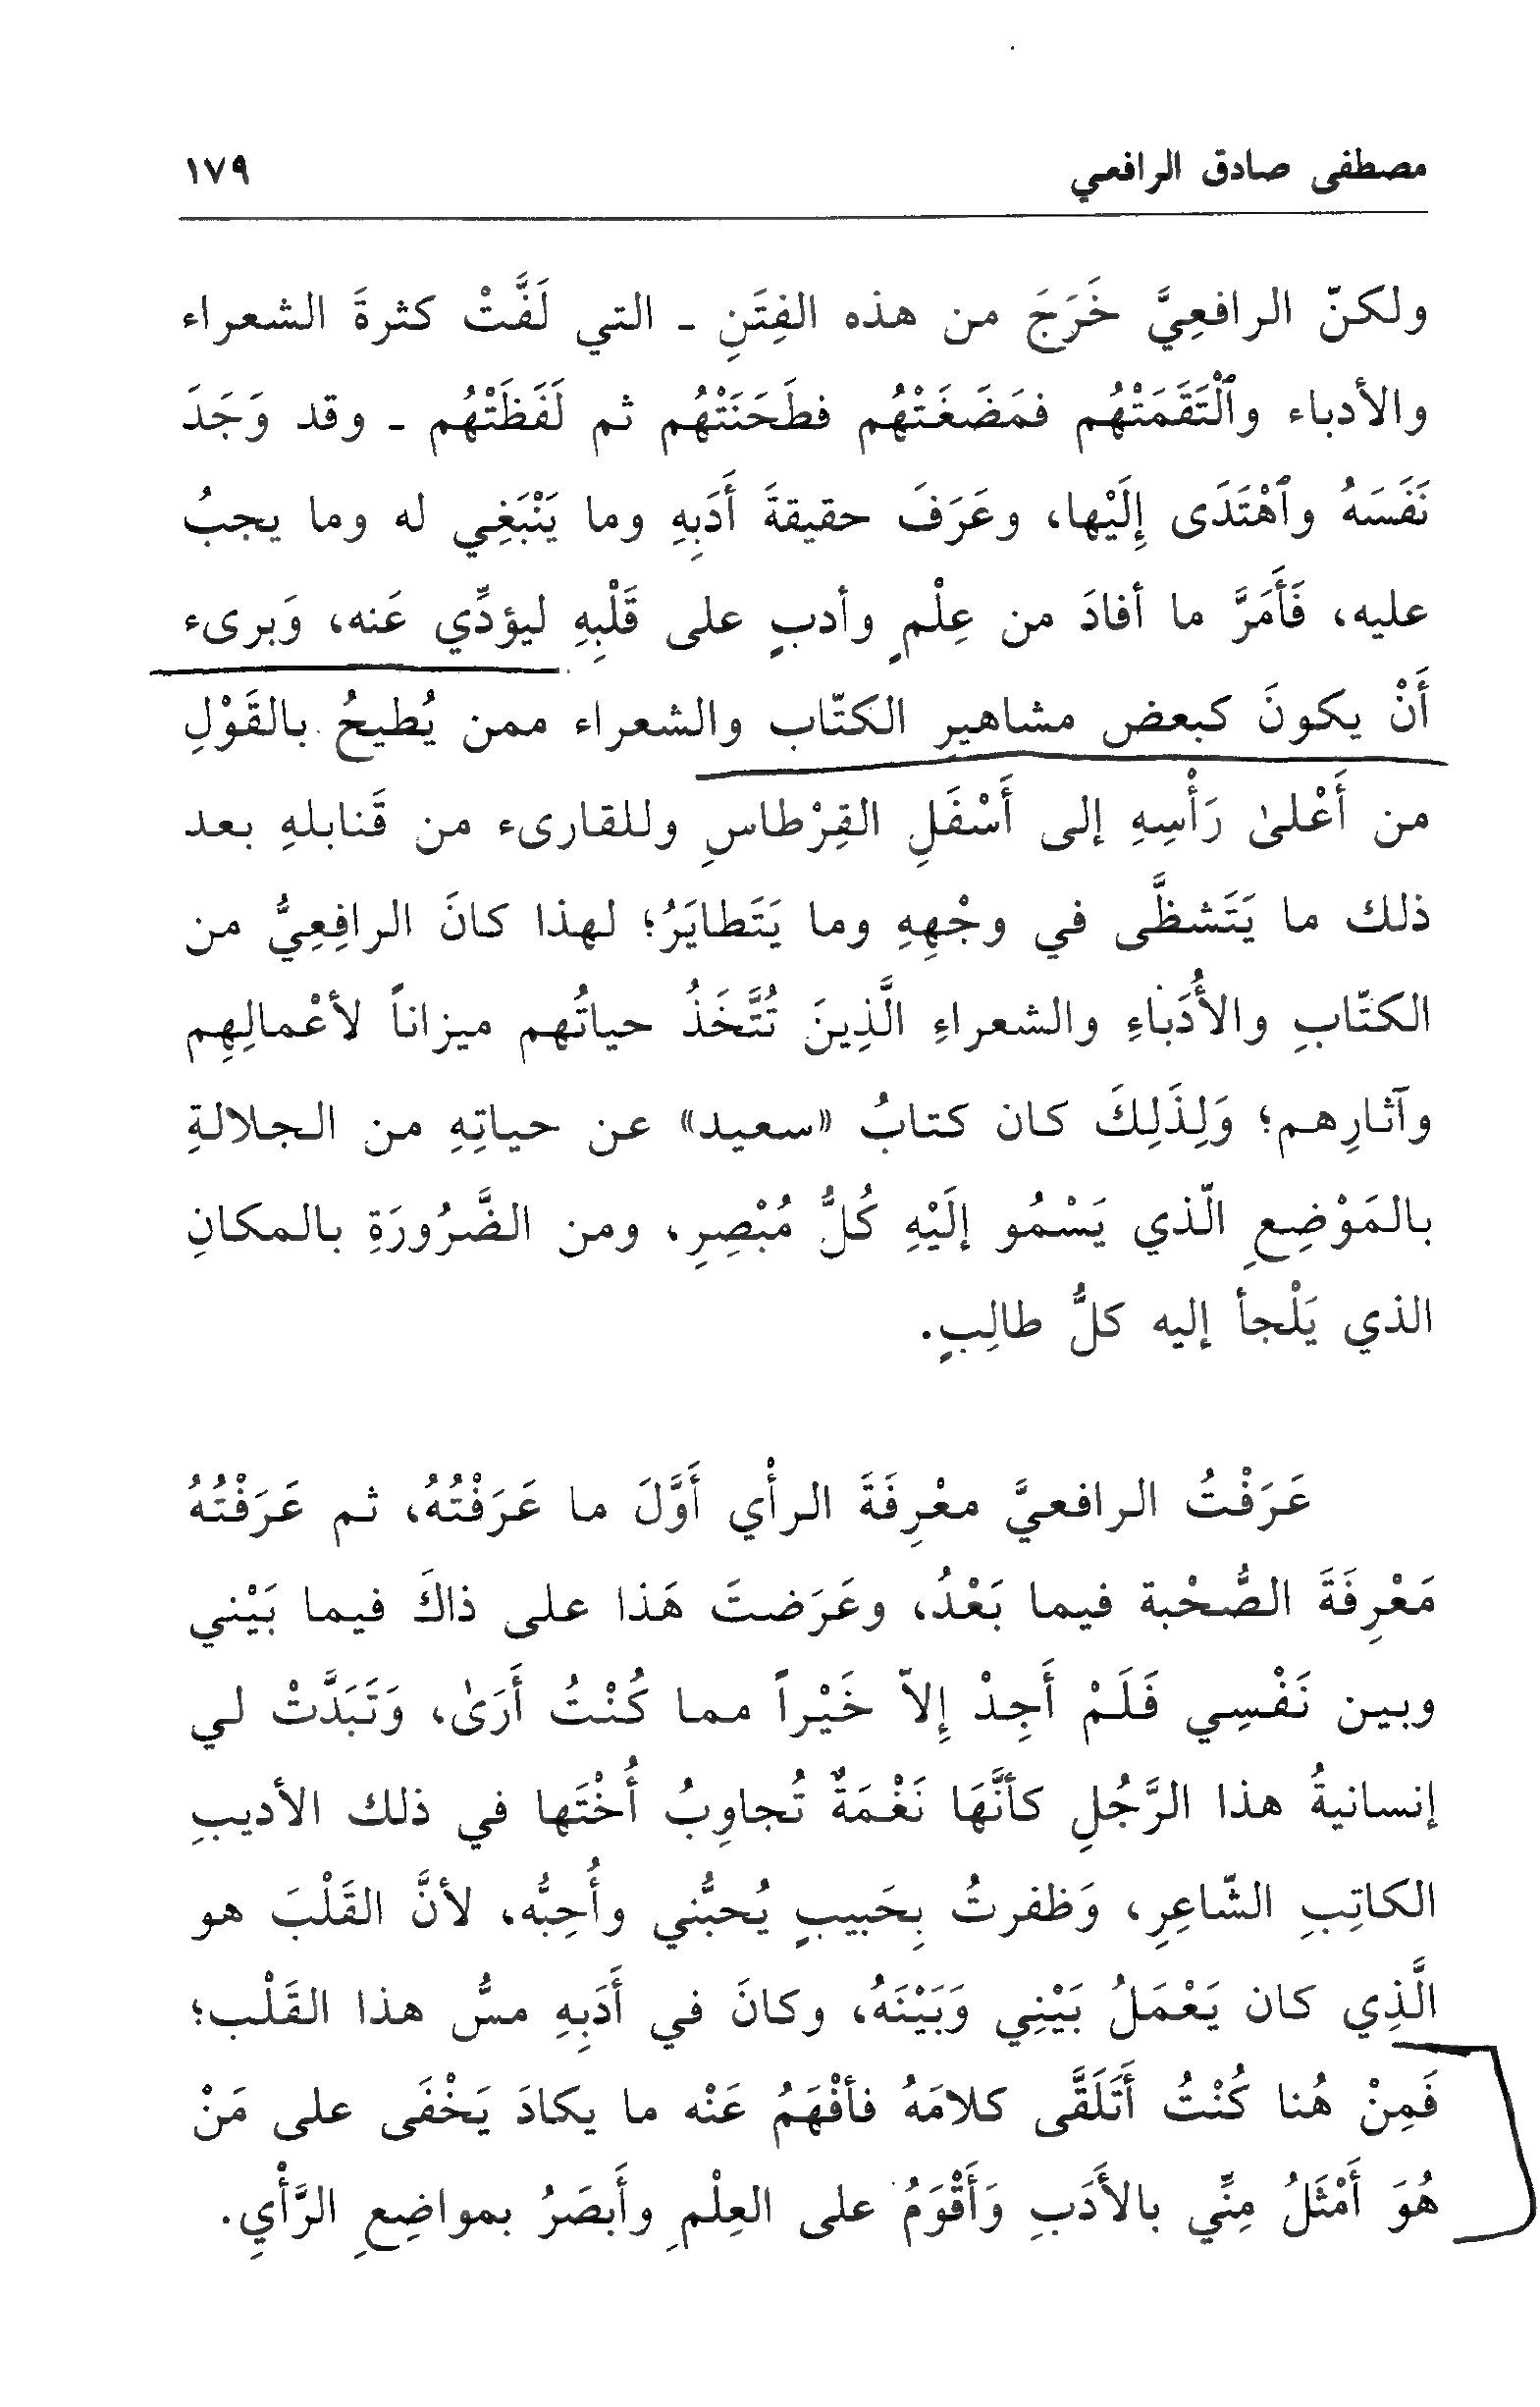 مصطفى صادق الرافعي ١٧٩
ولكنّ الرافعِيَّ خَرَجَ من هذه الفِتَنِ ـ التي لَفَّتْ كثرةَ الشعراء
والأدباء وٱلْتَقَمَتْهُم فمَضَغَتْهُم فطَحَنَتْهُم ثم لَفَظَتْهُم ـ وقد وَجَدَ
نَفَسَهُ وٱهْتَدَى إِلَيْها، وعَرَفَ حقيقةَ أَدَبِهِ وما يَنْبَغِي له وما يجبُ
عليه، فَأَمَرَّ ما أفادَ من عِلْمٍ وأدبٍ على قَلْبِهِ ليؤدِّي عَنه، وَبرىء
أَنْ يكونَ كبعض مشاهيرِ الكتّاب والشعراء ممن يُطيحُ بالقَوْلِ
من أَعْلىٰ رَأْسِهِ إلى أَسْفَلِ القِرْطاسِ وللقارىء من قَنابلهِ بعد
ذلك ما يَتَشظَّى في وجْهِهِ وما يَتَطايَرُ؛ لهذا كانَ الرافِعِيُّ من
الكتّابِ والأُدَباءِ والشعراءِ الَّذِينَ تُتَّخَذُ حياتُهم ميزاناً لأعْمالِهِم
وآثارِهم؛ وَلِذَلِكَ كان كتابُ «سعيد» عن حياتِهِ من الجلالةِ
بالمَوْضِعِ الّذي يَسْمُو إلَيْهِ كُلُّ مُبْصِرِ، ومن الضَّرُورَةِ بالمكانِ
الذي يَلْجأ إليه كلُّ طالِبٍ.
عَرَفْتُ الرافعيَّ معْرِفَةَ الرأْي أَوَّلَ ما عَرَفْتُهُ، ثم عَرَفْتُهُ
مَعْرِفَةَ الصُّحْبة فيما بَعْدُ، وعَرَضتَ هَذا على ذاكَ فيما بَيْني
وبين نَفْسِي فَلَمْ أَجِدْ إِلاّ خَيْراً مما كُنْتُ أَرَىٰ، وَتَبَدَّتْ لي
إنسانيةُ هذا الرَّجُلِ كأنَّهَا نَغْمَةٌ تُجاوِبُ أُخْتَها في ذلك الأديبِ
الكاتِبِ الشّاعِرِ، وَظفرتُ بِحَبيبٍ يُحبُّني وأُحِبُّه، لأنَّ القَلْبَ هو
الَّذِي كان يَعْمَلُ بَيْنِي وَبَيْنَهُ، وكانَ في أَدَبِهِ مسُّ هذا القَلْب؛
فَمِنْ هُنا كُنْتُ أَتَلَقَّى كلامَهُ فأفْهَمُ عَنْه ما يكادَ يَخْفَى على مَنْ
هُوَ أَمْثَلُ مِنِّي بالأَدَبِ وَأَقْوَمُ على العِلْمِ وأَبصَرُ بمواضِعِ الرَّأْيِ.